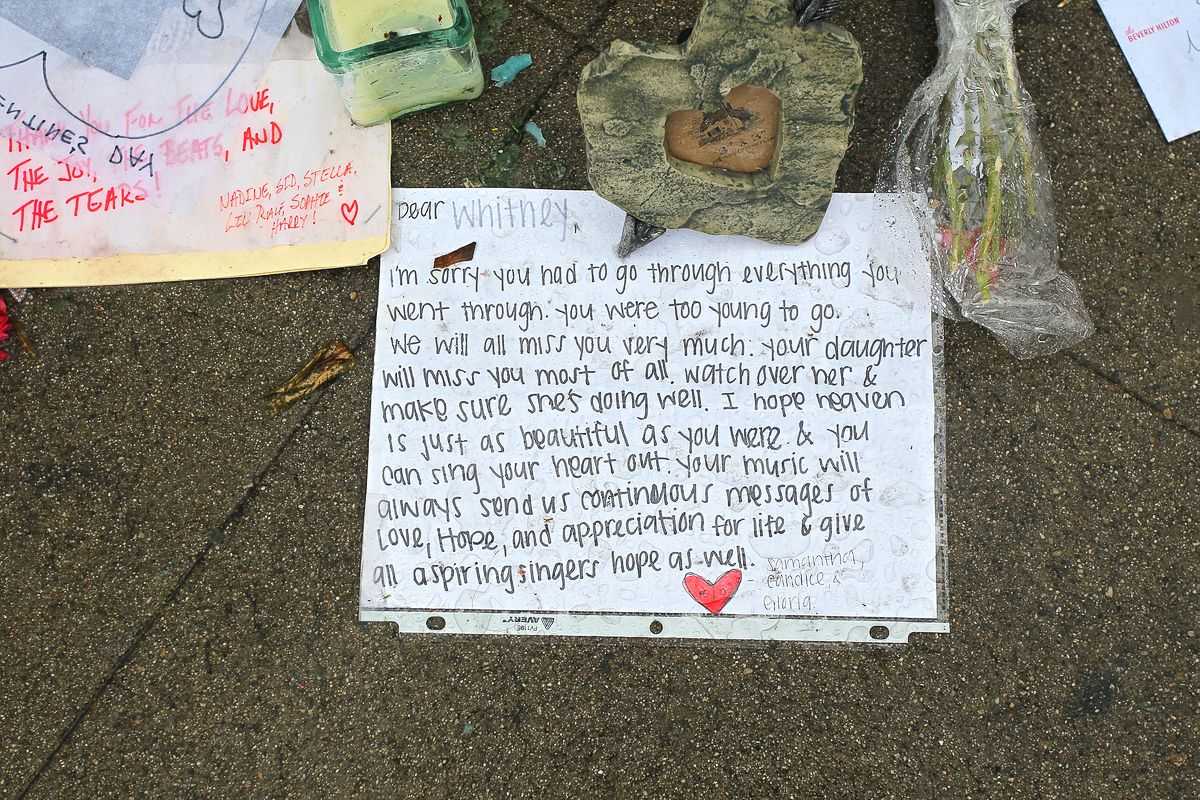 ENTINE'S DAY
THANK YOU FOR THE LOVE,
THE JOY, THE BEATS, AND
THE TEARS!
NADINE, SID, STELLA,
SOPHIE &
HARRY!
the
BEVERLY HILTON
Dear Whitney,
I'm sorry you had to go through everything you
went through. you were too young to go.
We will all miss you very much. your daughter
will miss you most of all. watch over her &
make sure she's doing well. I hope heaven
is just as beautiful as you were & you
can sing your heart out. your music will
always send us continuous messages of
Love, Hope, and appreciation for life & give
all aspiring singers hope as well.
- Samantha,
Candice, &
Gloria.
AVERY